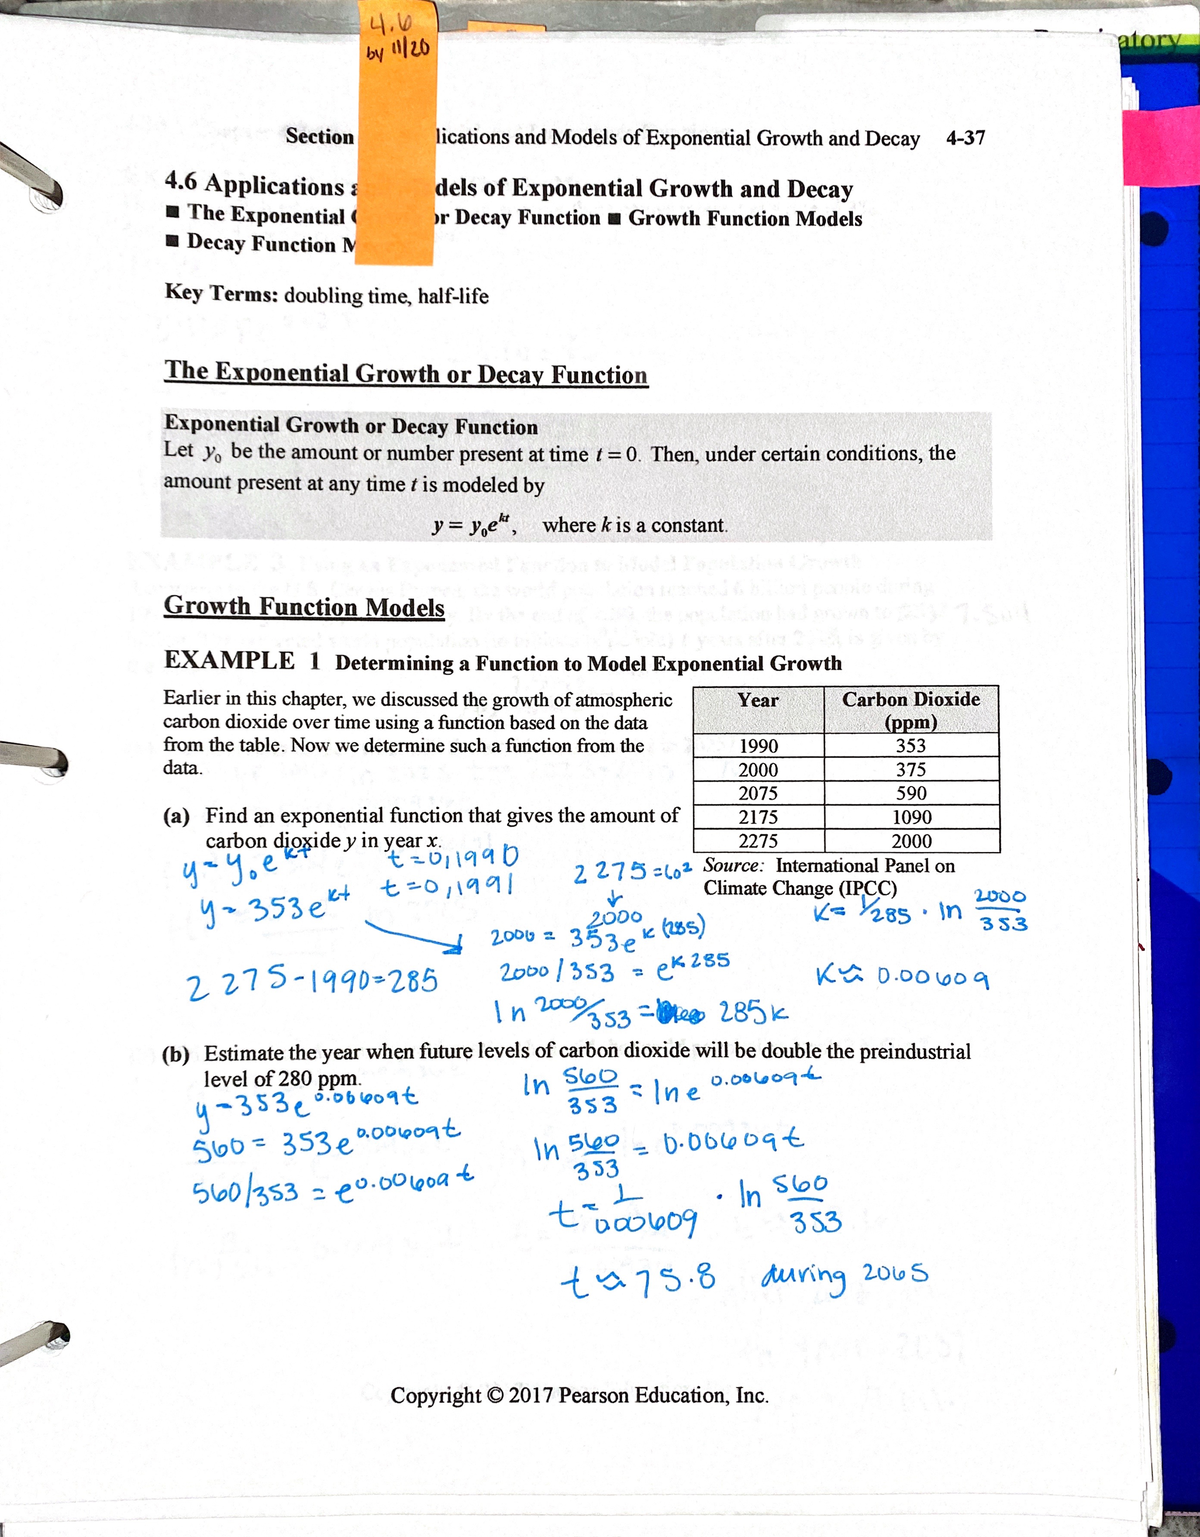 4.6
by 11/20
atory
Section lications and Models of Exponential Growth and Decay 4-37
4.6 Applications a dels of Exponential Growth and Decay
■ The Exponential or Decay Function ■ Growth Function Models
■ Decay Function M
Key Terms: doubling time, half-life
The Exponential Growth or Decay Function
Exponential Growth or Decay Function
Let y₀ be the amount or number present at time t = 0. Then, under certain conditions, the
amount present at any time t is modeled by
y = y₀e^kt, where k is a constant.
Growth Function Models
EXAMPLE 1 Determining a Function to Model Exponential Growth
Earlier in this chapter, we discussed the growth of atmospheric
carbon dioxide over time using a function based on the data
from the table. Now we determine such a function from the
data.
Year Carbon Dioxide
(ppm)
1990 353
2000 375
2075 590
2175 1090
2275 2000
Source: International Panel on
Climate Change (IPCC)
(a) Find an exponential function that gives the amount of
carbon dioxide y in year x.
y = y₀e^kt t=0,1990
y = 353e^kt t=0,1991
2275 - 1990 = 285
2275 = CO2
↓
2000
2000 = 353e^k(285)
2000/353 = e^k285
ln 2000/353 = 285k
k = 1/285 · ln 2000/353
k ≈ 0.00609
(b) Estimate the year when future levels of carbon dioxide will be double the preindustrial
level of 280 ppm.
y = 353e^0.00609t
560 = 353e^0.00609t
560/353 = e^0.00609t
ln 560/353 = ln e^0.00609t
ln 560/353 = 0.00609t
t = 1/0.00609 · ln 560/353
t ≈ 75.8 during 2065
Copyright © 2017 Pearson Education, Inc.